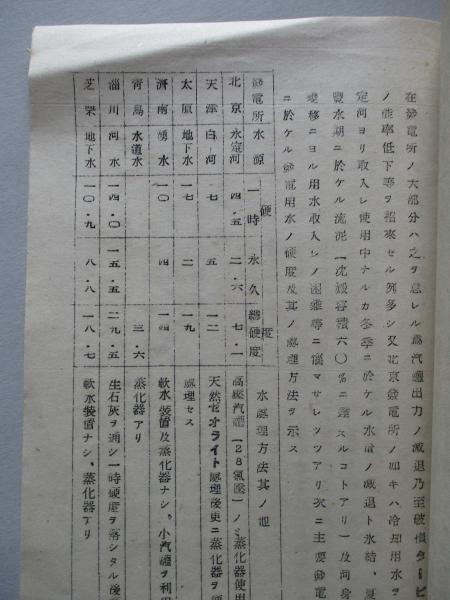 在発電所ノ大部分ハ之ヲ怠レル為汽罐出力ノ減退乃至破損タービ
ノ能率低下等ヲ招来セル例多シ又北京発電所ノ如キハ冷却用水ヲ
定河ヨリ取入レ使用中ナルカ冬季ニ於ケル水量ノ減退ト氷結、夏
豊水期ニ於ケル流泥(沈澱容積六〇%ニ達スルコトアリ)及河身
変移ニヨル用水取入レノ困難等ニ悩マサレツツアリ次ニ主要発電
ニ於ケル発電用水ノ硬度及其ノ処理方法ヲ示ス
発電所 水源 硬度 一時 永久 総硬度 水処理方法其ノ他
北京 永定河 四・五 二・六 七・一 高圧汽罐(28気圧)ノミ蒸化器使用
天津 白河 七 五 一二 天然ゼオライト処理後更ニ蒸化器ヲ
太原 地下水 一七 二 一九 処理セス
済南 湧水 一四 軟水装置及蒸化器ナシ、小汽罐ヲ利用
青島 水道水 三・六 蒸化器アリ
淄川 河水 一四・〇 一五・五 二九・五 生石灰ヲ通シ一時硬度ヲ落シタル後
芝罘 地下水 一〇・九 八・八 一八・七 軟水装置ナシ、蒸化器アリ